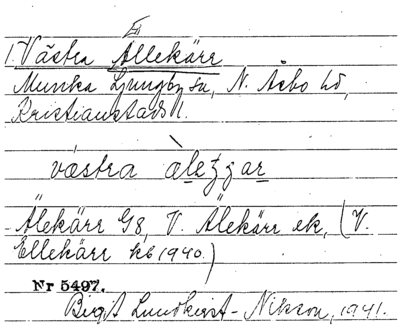 El
1. Västra Allekärr
Munka Ljungby sn, N. Åsbo hd,
Kristianstads l.
västra àleʒar
Älekärr G8, V. Älekärr ek, (V.
Ellekärr kb 1940.)
Nr 5497.
Birgit Lundkvist-Nilsson, 1941.